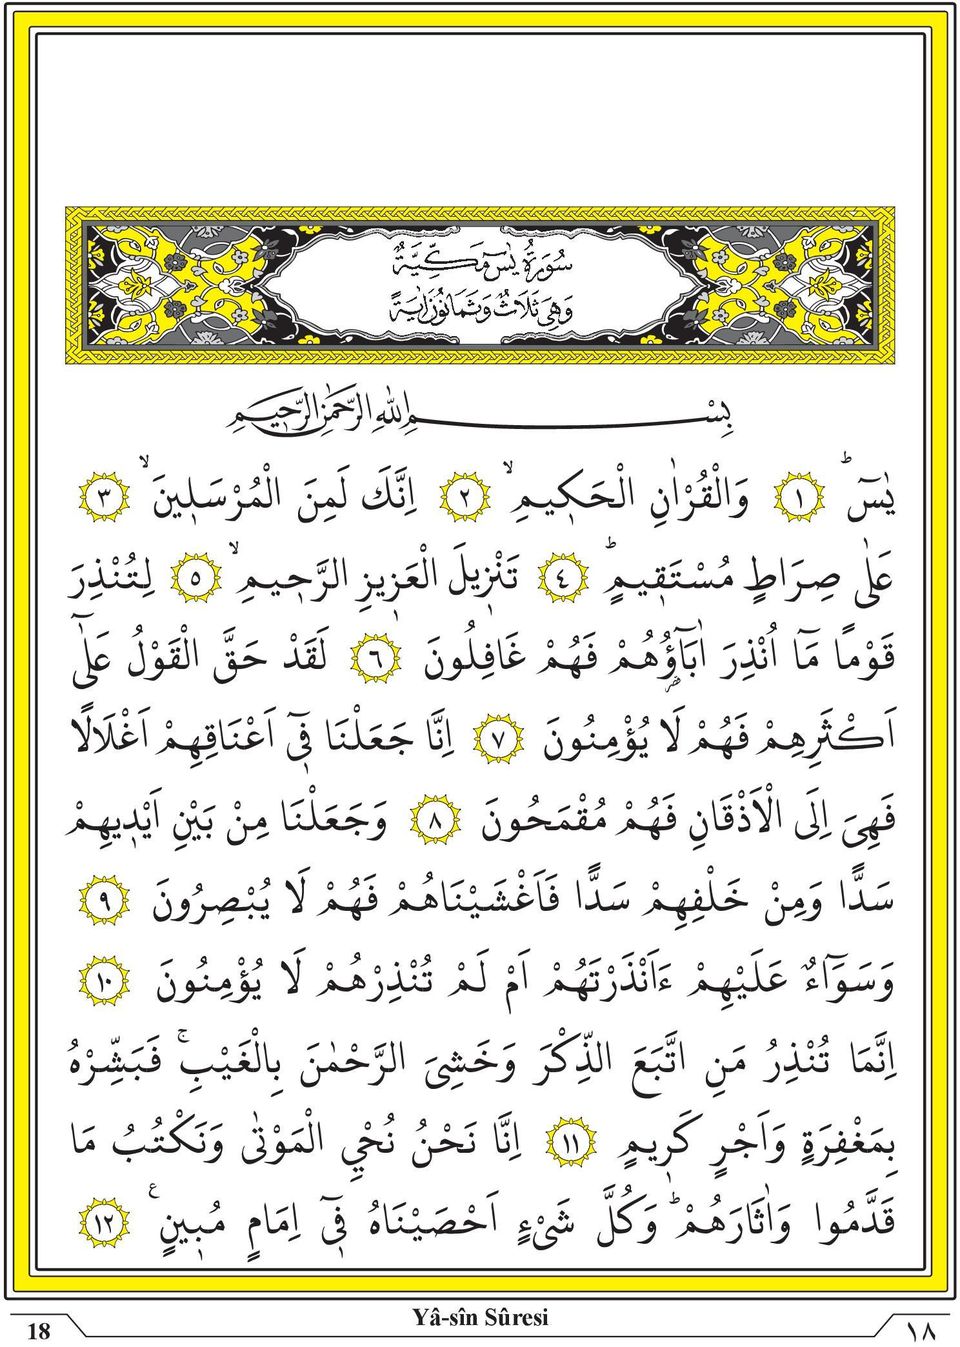 سُورَةُ يٰسٓ مَكِّيَّةٌ
وَهِيَ ثَلَاثٌ وَثَمَانُونَ اٰيَةً
بِسْمِ اللّٰهِ الرَّحْمٰنِ الرَّحٖيمِ
يٰسٓ ؕ ﴿١﴾ وَالْقُرْاٰنِ الْحَكٖيمِ ۙ ﴿٢﴾ اِنَّكَ لَمِنَ الْمُرْسَلٖينَ ۙ ﴿٣﴾
عَلٰى صِرَاطٍ مُسْتَقٖيمٍ ؕ ﴿٤﴾ تَنْزٖيلَ الْعَزٖيزِ الرَّحٖيمِ ۙ ﴿٥﴾ لِتُنْذِرَ
قَوْمًا مَٓا اُنْذِرَ اٰبَٓاؤُ۬هُمْ فَهُمْ غَافِلُونَ ﴿٦﴾ لَقَدْ حَقَّ الْقَوْلُ عَلٰٓى
اَكْثَرِهِمْ فَهُمْ لَا يُؤْمِنُونَ ﴿٧﴾ اِنَّا جَعَلْنَا فٖٓي اَعْنَاقِهِمْ اَغْلَالًا
فَهِيَ اِلَى الْاَذْقَانِ فَهُمْ مُقْمَحُونَ ﴿٨﴾ وَجَعَلْنَا مِنْ بَيْنِ اَيْدٖيهِمْ
سَدًّا وَمِنْ خَلْفِهِمْ سَدًّا فَاَغْشَيْنَاهُمْ فَهُمْ لَا يُبْصِرُونَ ﴿٩﴾
وَسَوَٓاءٌ عَلَيْهِمْ ءَاَنْذَرْتَهُمْ اَمْ لَمْ تُنْذِرْهُمْ لَا يُؤْمِنُونَ ﴿١٠﴾
اِنَّمَا تُنْذِرُ مَنِ اتَّبَعَ الذِّكْرَ وَخَشِيَ الرَّحْمٰنَ بِالْغَيْبِ ۚ فَبَشِّرْهُ
بِمَغْفِرَةٍ وَاَجْرٍ كَرٖيمٍ ﴿١١﴾ اِنَّا نَحْنُ نُحْيِ الْمَوْتٰى وَنَكْتُبُ مَا
قَدَّمُوا وَاٰثَارَهُمْ ؕ وَكُلَّ شَيْءٍ اَحْصَيْنَاهُ فٖٓي اِمَامٍ مُبٖينٍ ع ﴿١٢﴾
18 Yâ-sîn Sûresi ١٨